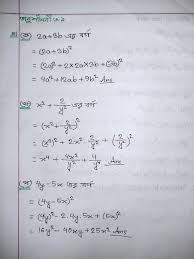 অনুশীলনী ৩.১
১। (ক) 2a+3b এর বর্গ
= (2a+3b)²
= (2a)² + 2×2a×3b + (3b)²
= 4a² + 12ab + 9b² Ans
(খ) x² + 2/y² এর বর্গ
= (x² + 2/y²)²
= (x²)² + 2x². 2/y² + (2/y²)²
= x⁴ + 4x²/y² + 4/y⁴ Ans
(গ) 4y - 5x এর বর্গ
= (4y - 5x)²
= (4y)² - 2.4y.5x + (5x)²
= 16y² - 40xy + 25x² Ans